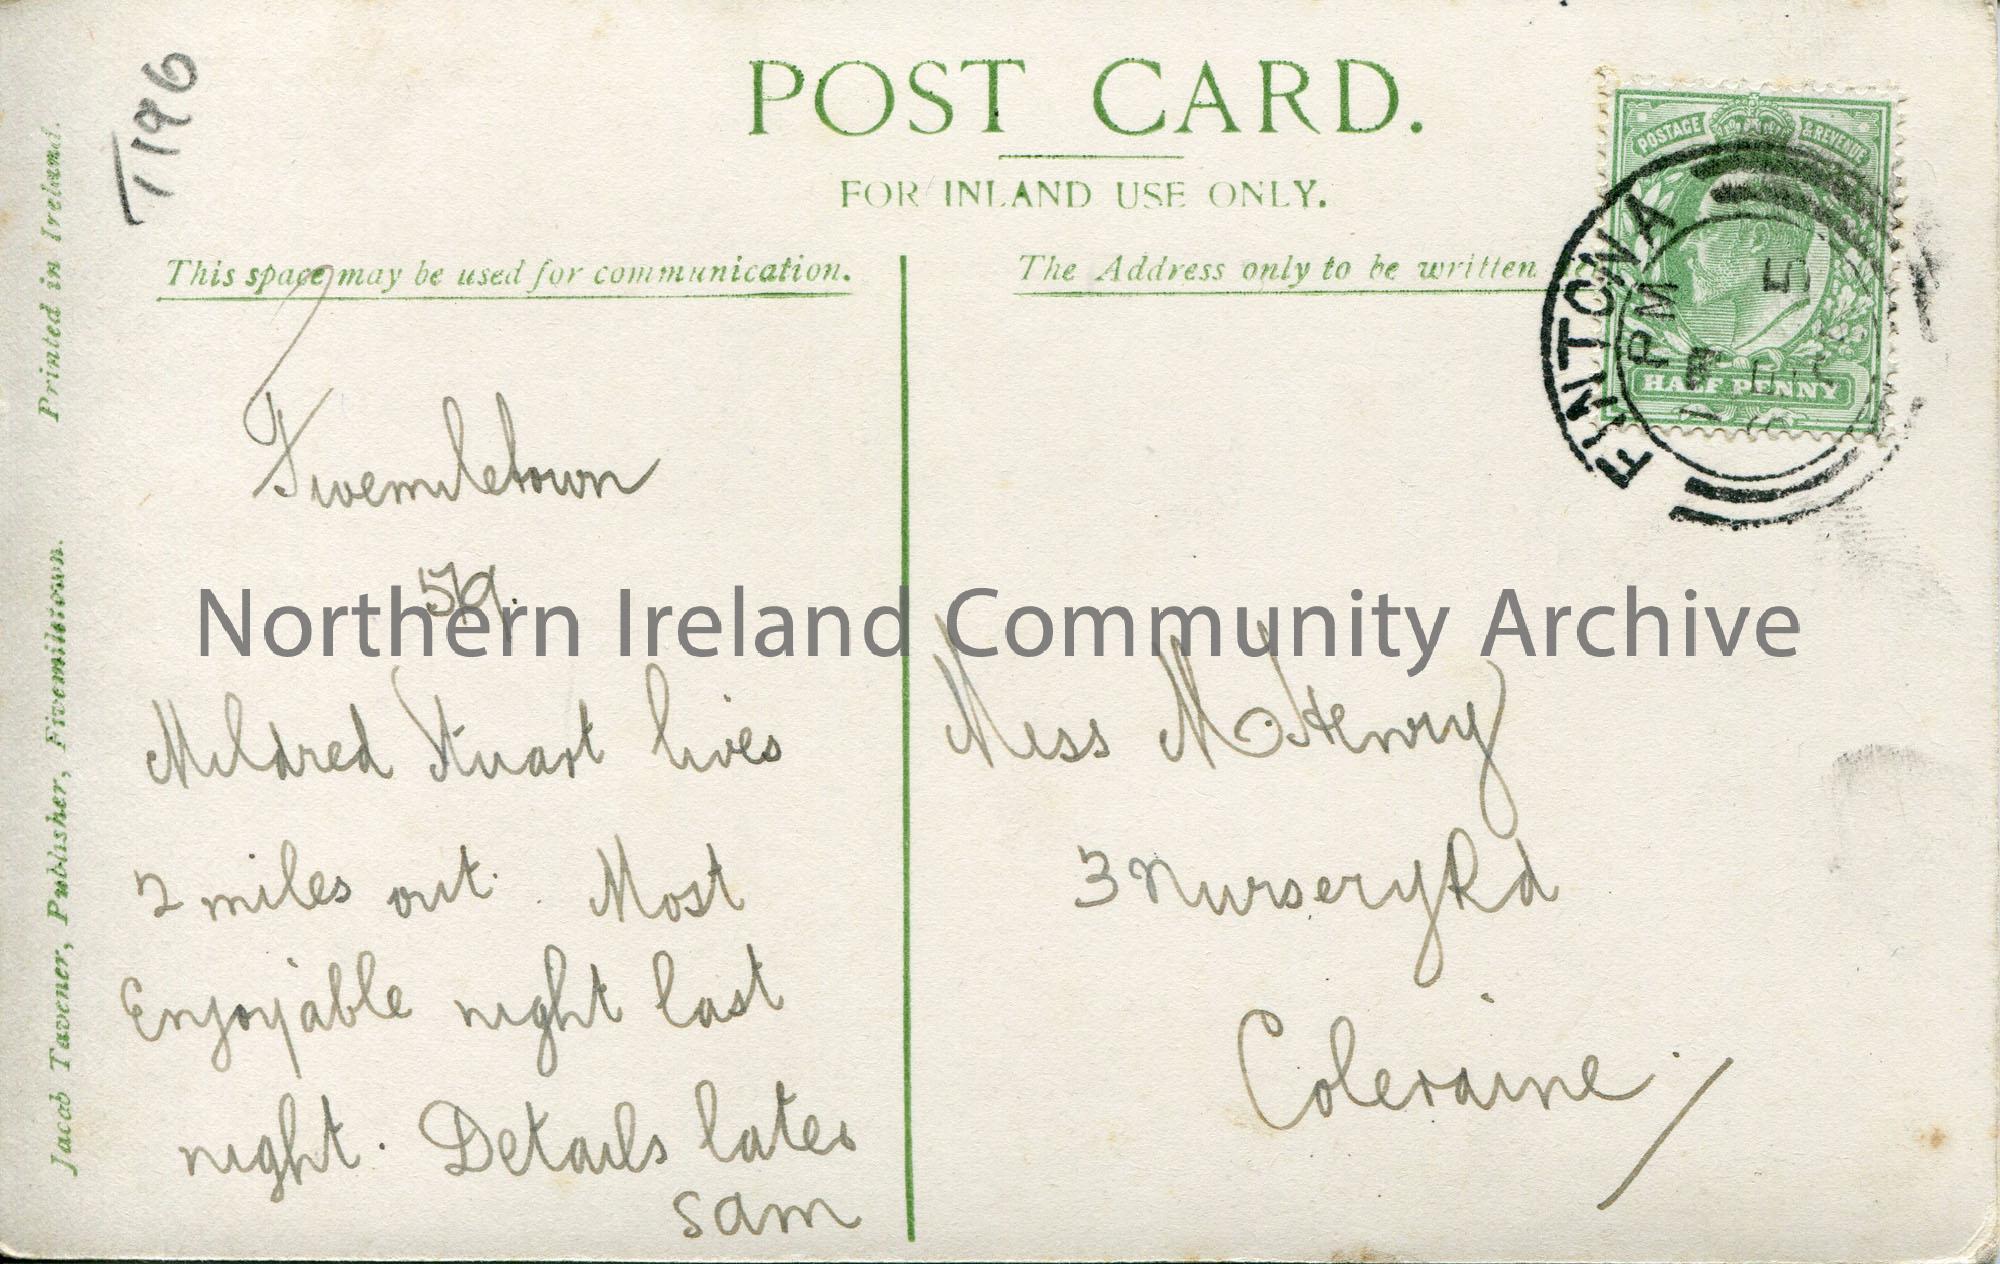 POST CARD.
FOR INLAND USE ONLY.
This space may be used for communication.
The Address only to be written
T196
Printed in Ireland.
Jacob Tavener, Publisher, Fivemiletown.
POSTAGE & REVENUE
HALF PENNY
FINTONA
PM
5
Fivemiletown
Mildred Stuart lives
2 miles out. Most
Enjoyable night last
night. Details later
Sam
Miss McHenry
3 Nursery Rd
Coleraine
Northern Ireland Community Archive